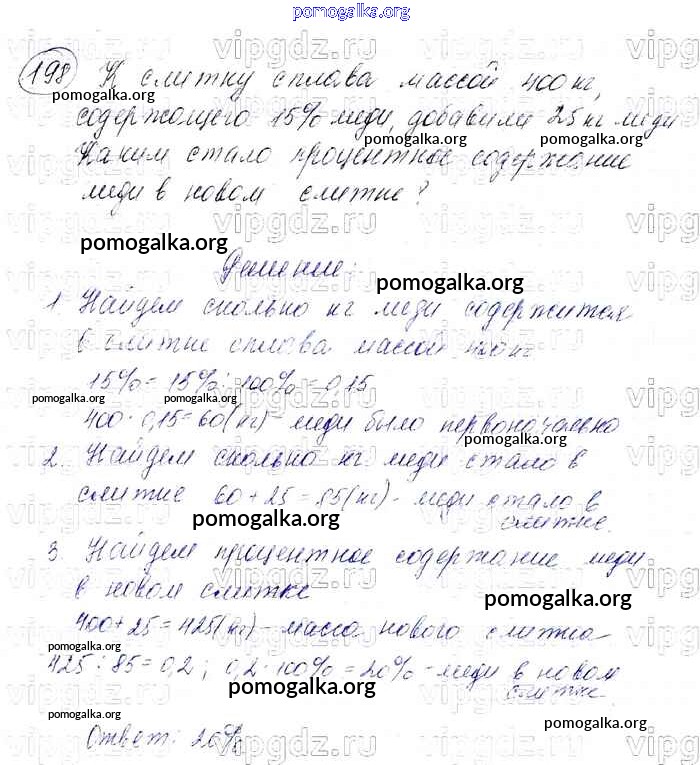 pomogalka.org
198 К слитку сплава массой 400 кг,
содержащего 15% меди, добавили 25 кг меди
Каким стало процентное содержание
меди в новом слитке?
Решение:
1 Найдем сколько кг меди содержится
в слитке сплава массой 400 кг
15% = 15% : 100% = 0,15
400 · 0,15 = 60 (кг) - меди было первоначально
2. Найдем сколько кг меди стало в
слитке 60 + 25 = 85 (кг) - меди стало в
слитке.
3 Найдем процентное содержание меди
в новом слитке
400 + 25 = 425 (кг) - масса нового слитка
425 : 85 = 0,2 ; 0,2 · 100% = 20% - меди в новом
слитке.
Ответ: 20%